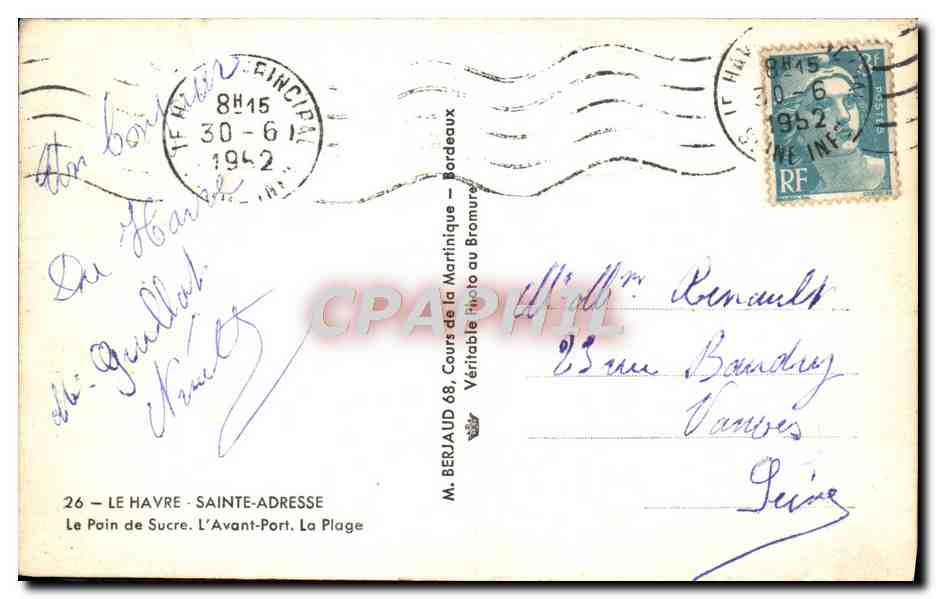 Un bonjour
Du Havre
LE HAVRE PRINCIPAL
8H15
30-6
1952
LE HAVRE
8H15
30-6
1952
SEINE INFRE
POSTES
RF
M. BERJAUD 68, Cours de la Martinique – Bordeaux
Véritable Photo au Bromure
CPAPHIL
Mr Mme Renault
23 rue Baudry
Vanves
Seine
26 – LE HAVRE - SAINTE-ADRESSE
Le Pain de Sucre. L'Avant-Port. La Plage